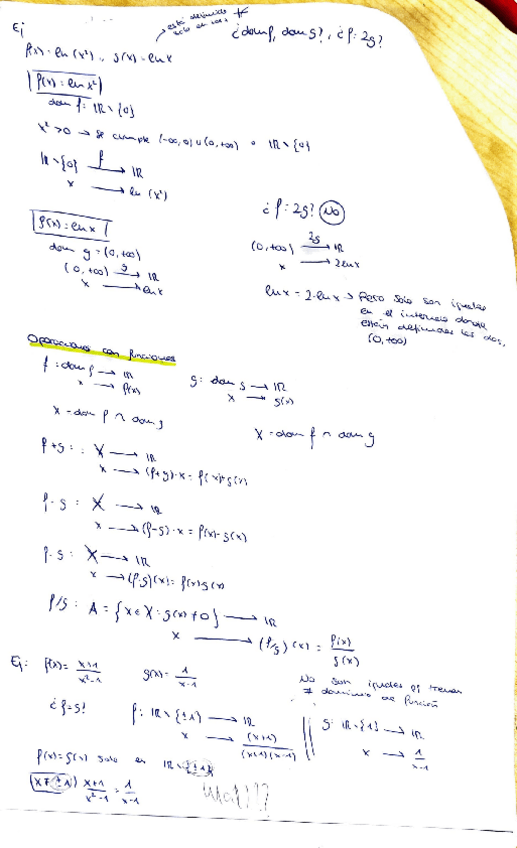 Ej
¿dom f, dom g?, ¿f = 2g?
f(x) = ln(x²), g(x) = ln x
f(x) = ln x²
dom f: ℝ \ {0}
x² > 0 → se cumple (-∞, 0) ∪ (0, +∞) o ℝ \ {0}
ℝ \ {0} f→ ℝ
x → ln (x²)
¿f = 2g? No
g(x) = ln x
dom g = (0, +∞)
(0, +∞) g→ ℝ
x → ln x
(0, +∞) 2g→ ℝ
x → 2 ln x
ln x = 2·ln x → Pero solo son iguales
en el intervalo donde
están definidas las dos,
(0, +∞)
Operaciones con funciones
f: dom f → ℝ
x → f(x)
g: dom g → ℝ
x → g(x)
X = dom f ∩ dom g
X = dom f ∩ dom g
f+g: X → ℝ
x → (f+g)·x = f(x)+g(x)
f-g: X → ℝ
x → (f-g)·x = f(x)-g(x)
f·g: X → ℝ
x → (f·g)(x) = f(x)g(x)
f/g: A = {x ∈ X : g(x) ≠ 0} → ℝ
x → (f/g)(x) = f(x)/g(x)
Ej: f(x) = x+1/x²-1
g(x) = 1/x-1
No son iguales
≠ dominio de
¿f = g?
f: ℝ \ {±1} → ℝ
x → (x+1)/(x+1)(x-1)
g: ℝ \ {1} → ℝ
x → 1/x-1
f(x) = g(x) solo en ℝ \ {±1}
(x ≠ ±1) x+1/x²-1 = 1/x-1